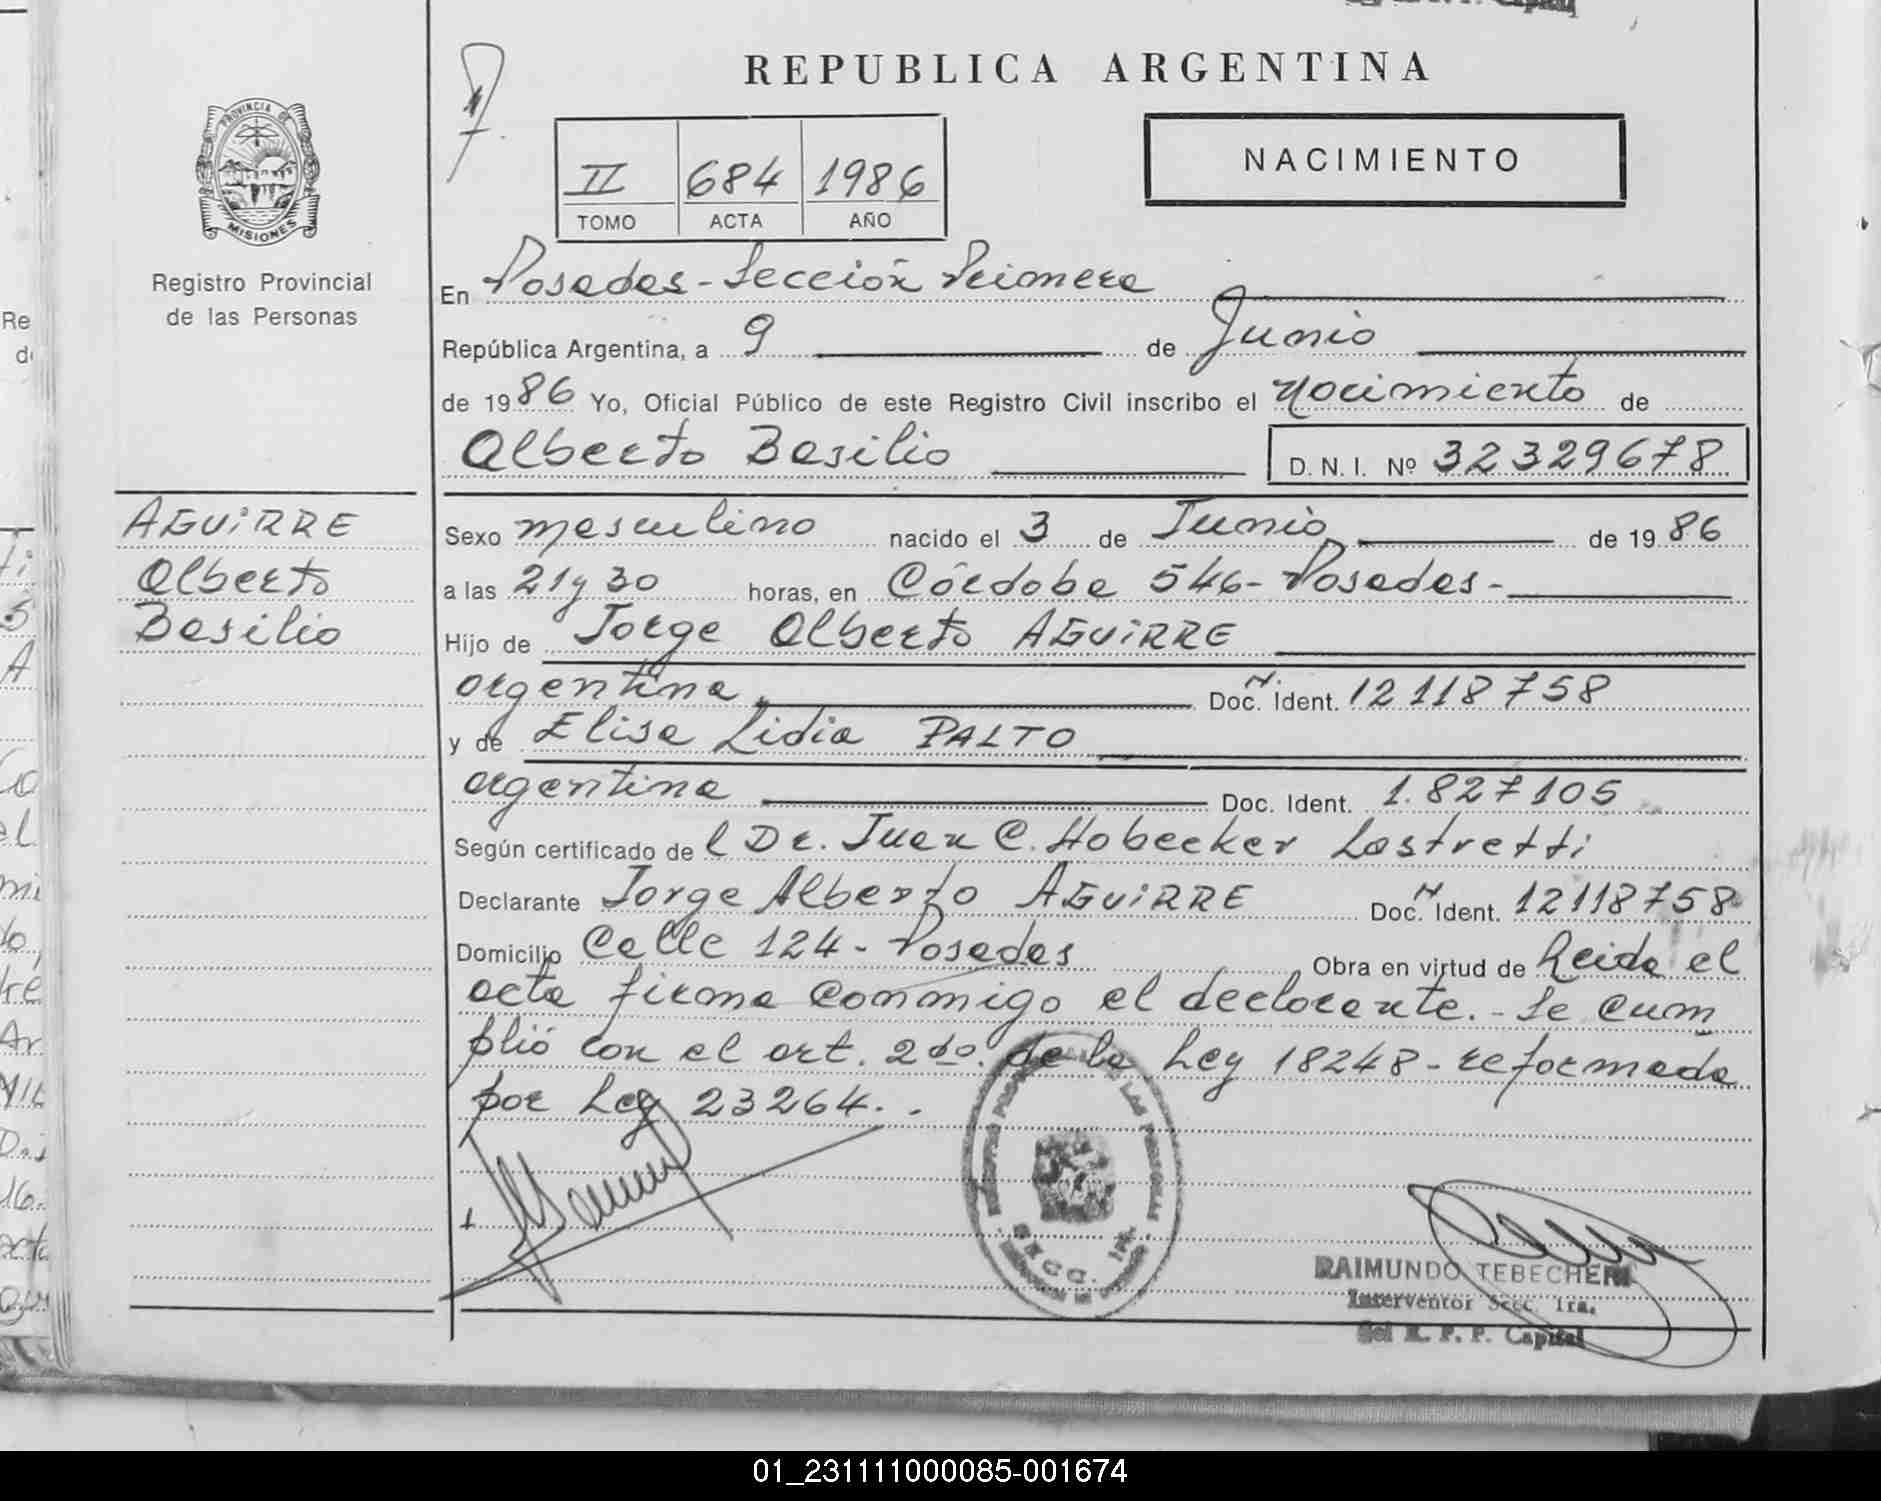 REPUBLICA ARGENTINA
PROVINCIA DE
MISIONES
Registro Provincial
de las Personas
II 684 1986
TOMO ACTA AÑO
NACIMIENTO
En Posadas - Sección Primera
República Argentina, a 9 de Junio
de 1986 Yo, Oficial Público de este Registro Civil inscribo el nacimiento de
Alberto Basilio D. N. I. Nº 32329678
AGUIRRE
Alberto
Basilio
Sexo masculino nacido el 3 de Junio de 1986
a las 21 y 30 horas, en Córdoba 546 - Posadas -
Hijo de Jorge Alberto AGUIRRE
argentina Doc. N. Ident. 12118758
y de Elisa Lidia PALTO
argentina Doc. Ident. 1.827105
Según certificado de l Dr. Juan C. Hobecker Lastretti
Declarante Jorge Alberto AGUIRRE Doc. N. Ident. 12118758
Domicilio Calle 124 - Posadas Obra en virtud de Leida el
acta firma conmmigo el declarante. - Se cum
plió con el art. 2do. de la Ley 18248 - reformada
por Ley 23264. .
RAIMUNDO TEBECHERI
Interventor Secc. 1ra.
del R. P. P. Capital
01_231111000085-001674